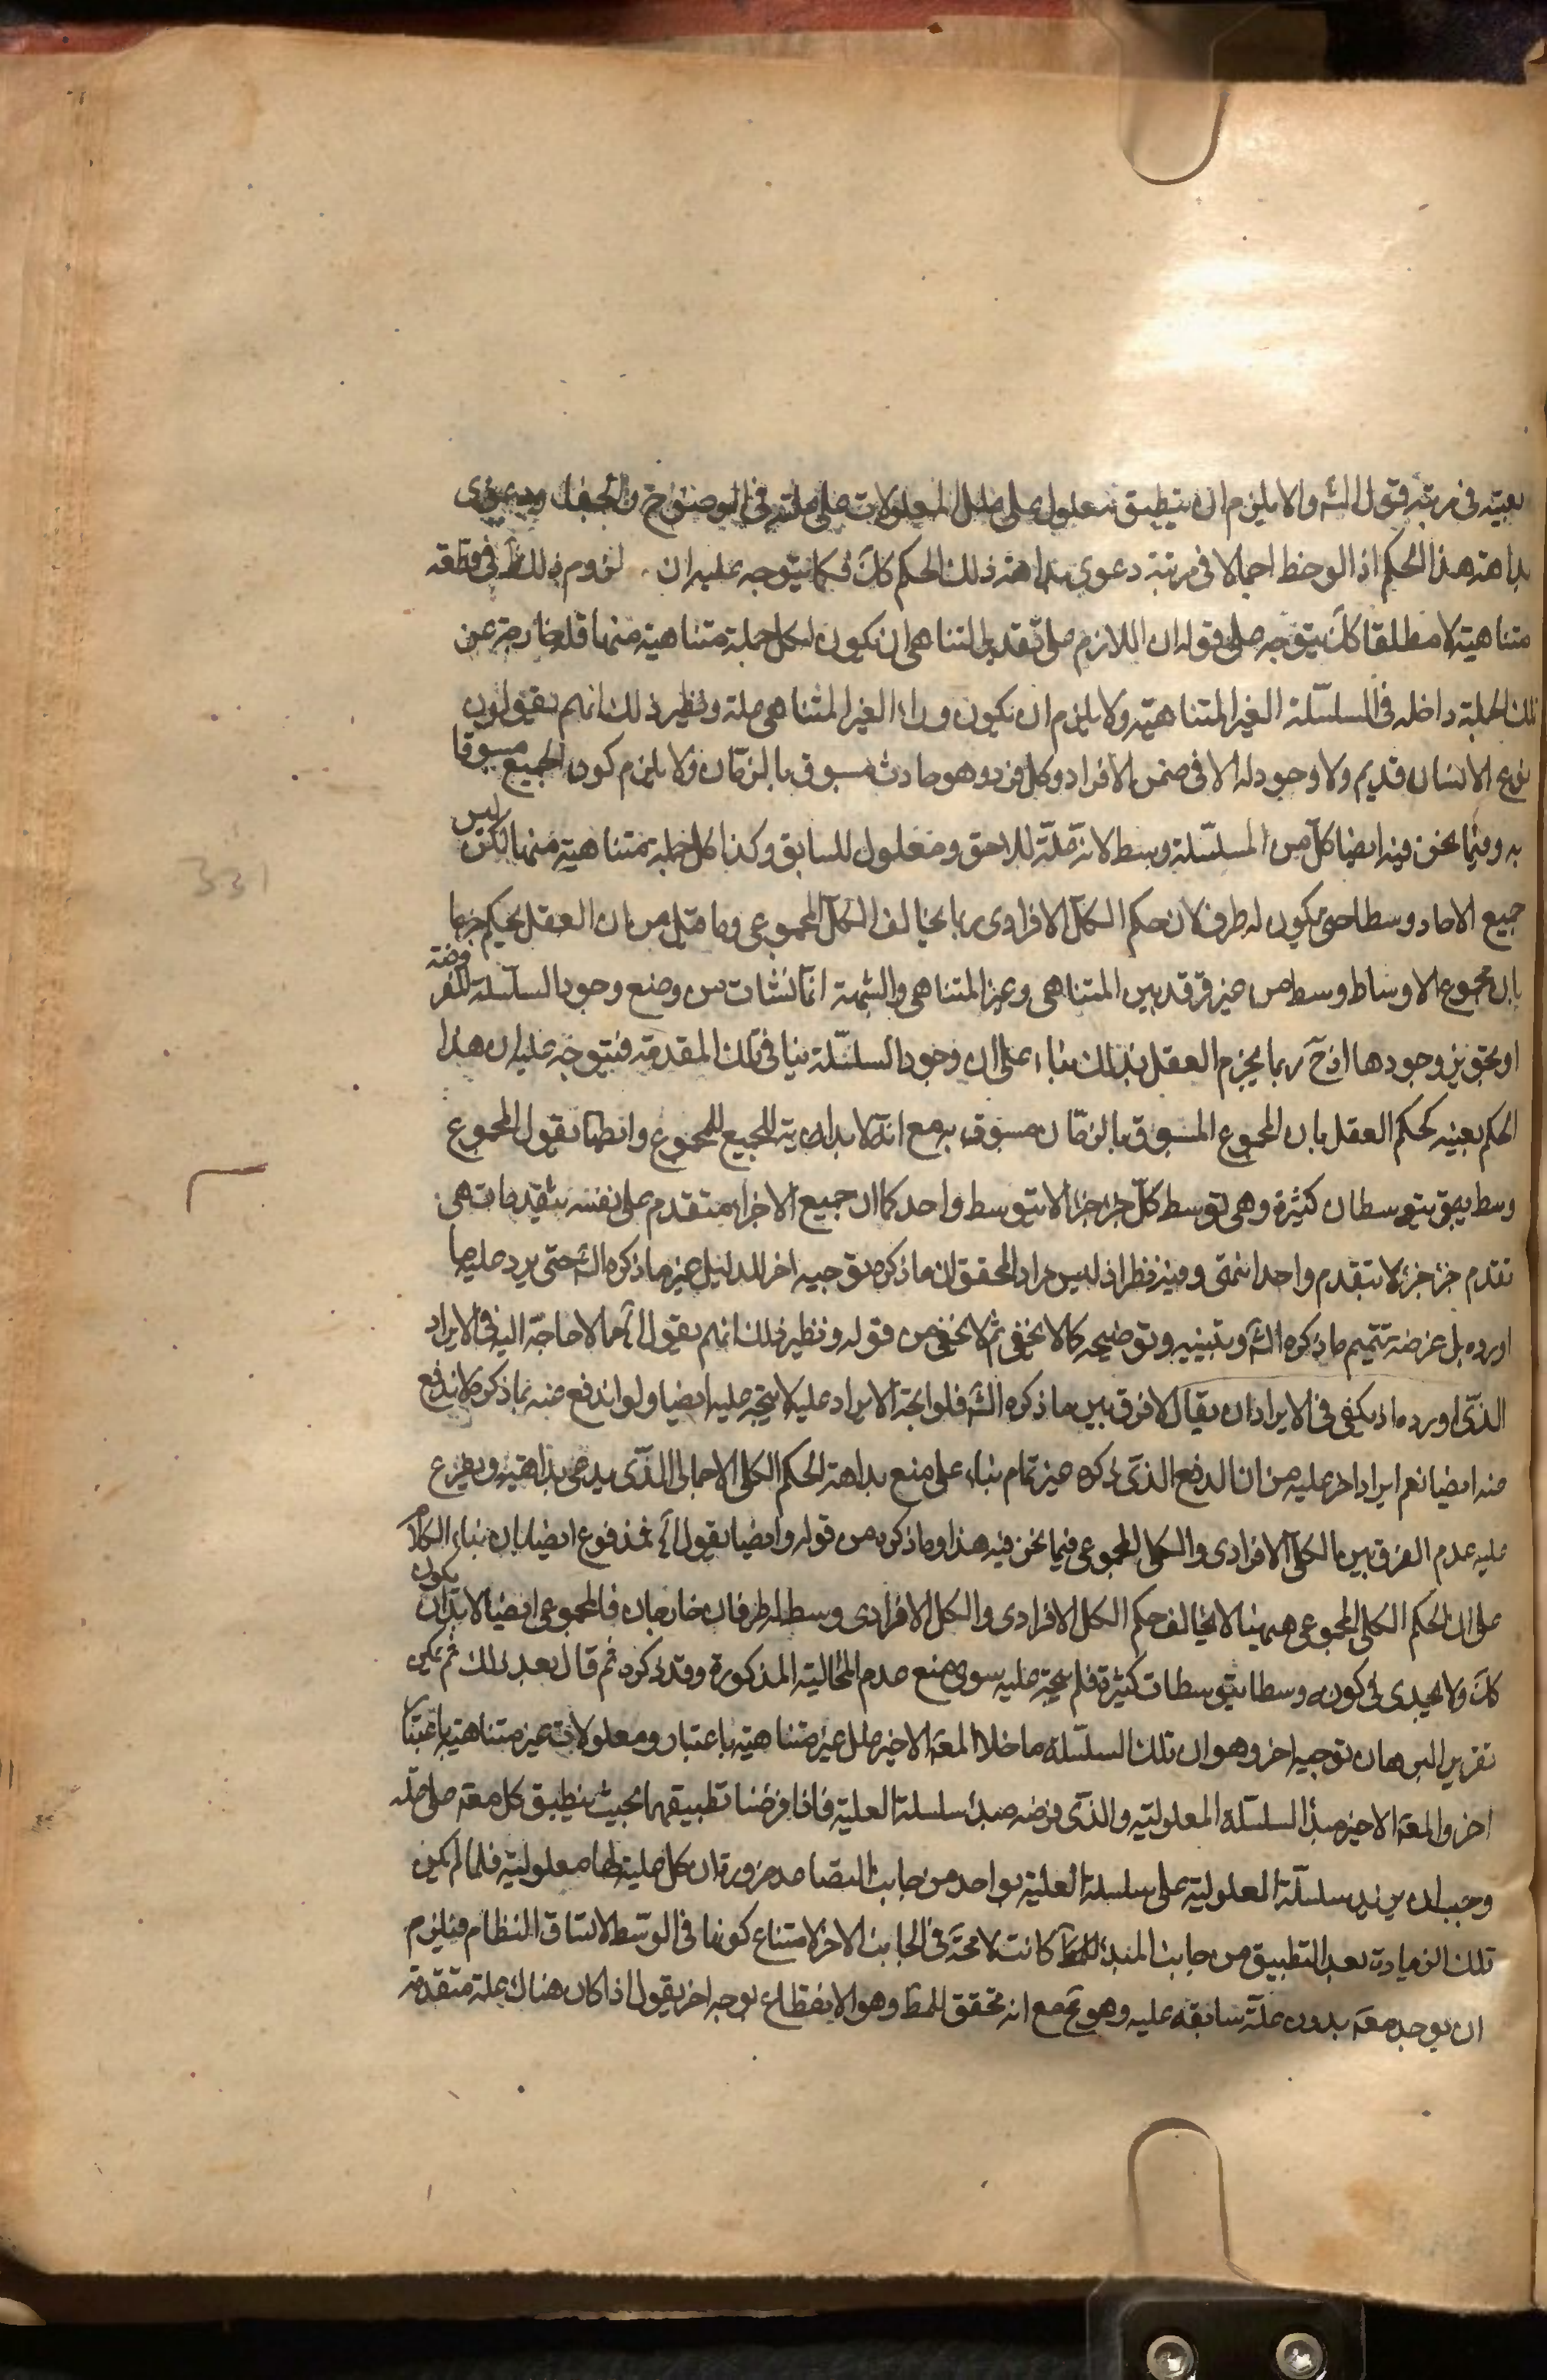 بعينه فى مرتبة قول الش والا يلزم ان ينطبق معلول على علل المعلولات على علته فى الوصف ح
بداهة هذا الحكم اذا لوحظ اجمالا فى مرتبة دعوى بداهة ذلك الحكم كك فكما يتوجه عليه ان لزوم ذلك فى قطعة
متناهية لا مطلقا كك يتوجه على قوله ان اللازم على تقدير التناهى ان يكون لكل جملة متناهية منها علة خارجة عن
تلك الجملة داخله فى السلسلة الغير المتناهية ولا يلزم ان يكون وراء الغير المتناهى علة ونظير ذلك انهم يقولون
نوع الانسان قديم ولا وجود له الا فى ضمن الافراد وكل فرد وهو حادث مسبوق بالزمان ولا يلزم كون الجميع مسبوقا
به وفيما نحن فيه ايضا كل من السلسلة وسط لانه علة للاحق ومعلول للسابق وكذا كل جملة متناهية منها لكن ليس
جميع الاحاد وسطا حتى يكون له طرف لان حكم الكل الافرادى ربما يخالف الكل المجموعى وما قيل من ان العقل يحكم جزما
بان مجموع الاوساط وسط من غير فرق بين المتناهى وغير المتناهى والشبهة انما نشات من وضع وجود السلسلة المفروضة
او تجويز وجودها اذ ح ربما يجزم العقل بذلك بناء على ان وجود السلسلة ينافى تلك المقدمة فيتوجه عليه ان هذا
الحكم بعينه كحكم العقل بان المجموع المسبوق بالزمان مسبوق به مع انه لا بداية للجميع للمجموع وايضا نقول المجموع
وسط بتوسطات كثيرة وهى توسط كل جزء جزء لا بتوسط واحد كما ان جميع الاجزاء متقدم على نفسه بتقدمات هى
تقدم جزء جزء لا بتقدم واحد انتهى وفيه نظر اذ ليس مراد المحقق ان ما ذكره توجيه اخر للدليل غير ما ذكره الش حتى يرد عليه ما
اورده بل غرضه تتميم ما ذكره الش وتبيينه وتوضيحه كما لا يخفى ثم لا يخفى من قوله ونظير ذلك انهم يقولون الخ مما لا حاجة اليه فى الايراد
الذى اورده اذ يكفى فى الايراد ان يقال لا فرق بين ما ذكره الش فلو اتجه الايراد عليه لا يتجه عليه ايضا ولو اندفع عنه بما ذكره لاندفع
عنه ايضا نعم ايراد اخر عليه من ان الدفع الذى ذكره غير تمام بناء على منع بداهة الحكم الكلى الاجمالى الذى يدعى بداهته ويفرع
عليه عدم الفرق بين الكل الافرادى والكل المجموعى فيما نحن فيه هذا وما ذكره من قوله وايضا نقول الخ فمدفوع ايضا بان بناء الكلام
على ان الحكم الكل المجموعى ههينا لا يخالف حكم الكل الافرادى والكل الافرادى وسط له طرفان خارجان فالمجموعى ايضا لا بد ان يكون
كك ولا يجدى فى كونه وسطا بتوسطات كثيرة فلم يتجه عليه سوى منع عدم المخالفة المذكورة وقد ذكره ثم قال بعد ذلك ثم يمكن
تقرير البرهان توجيه اخر وهو ان تلك السلسلة ما خلا المعلول الاخير علل غير متناهية باعتبار ومعلولات غير متناهية باعتبار
اخر والمعلول الاخير مبدأ السلسلة المعلولية والذى فرضه مبدأ سلسلة العلية فاذا فرضنا تطبيقهما بحيث ينطبق كل معلول على علته
وجب ان يزيد سلسلة المعلولية على سلسلة العلية بواحد من جانب التصاعد ضرورة ان كل علية لها معلولية فلما لم يكن
تلك الزيادة بعد التطبيق من جانب المبدأ كانت لا محة فى الجانب الاخر لامتناع كونها فى الوسط لاتساق النظام فيلزم
ان يوجد معلول بدون علة سابقة عليه وهو مح مع انه تحقق للمط وهو الانقطاع بوجه اخر يقول اذا كان هناك علة متقدمة
331